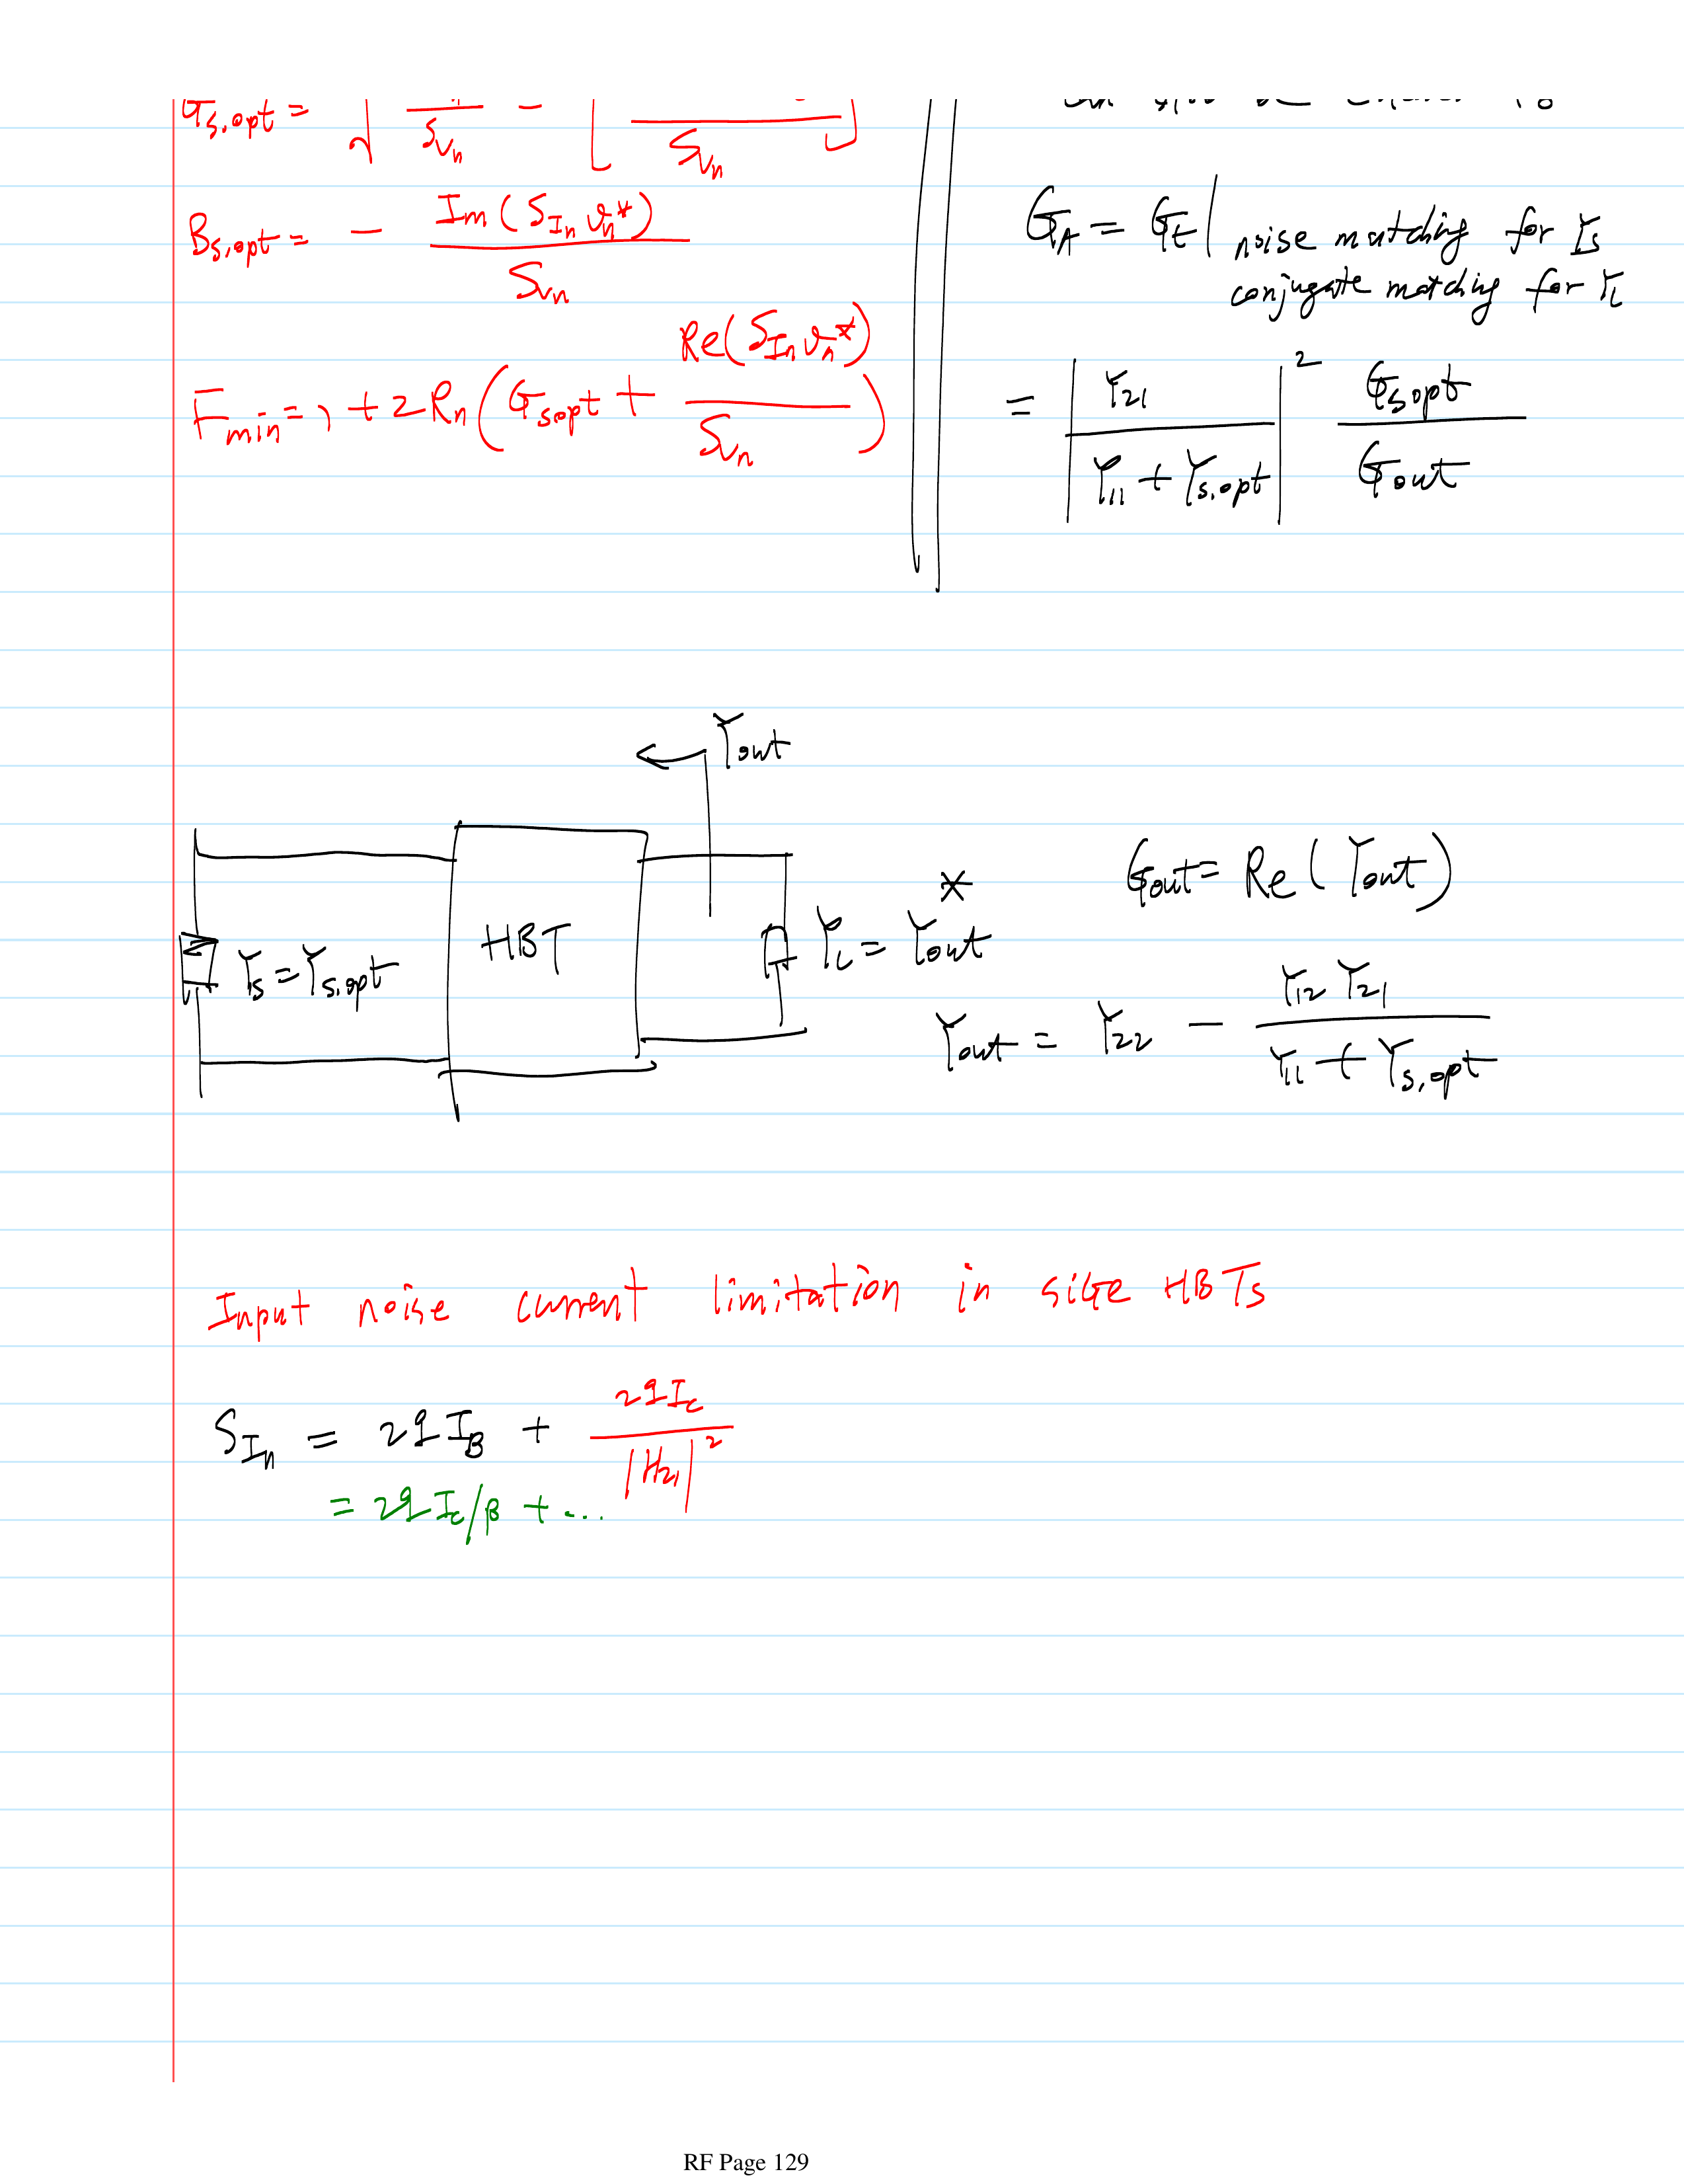 G_{s,opt} = √ / S_{v_n} - [ / S_{v_n} ]
B_{s,opt} = - Im(S_{I_n v_n^*}) / S_{v_n}
F_{min} = 1 + 2R_n(G_{sopt} + Re(S_{I_n v_n^*}) / S_{v_n})
G_A = G_t | noise matching for Y_s
conjugate matching for Y_L
= |Y_{21} / (Y_{11} + Y_{s,opt})|^2 G_{sopt} / G_{out}
Y_{out}
HBT
Y_s = Y_{s,opt}
Y_L = Y_{out}^*
G_{out} = Re(Y_{out})
Y_{out} = Y_{22} - Y_{12} Y_{21} / (Y_{11} + Y_{s,opt})
Input noise current limitation in SiGe HBTs
S_{I_n} = 2qI_B + 2qI_C / |H_{21}|^2
= 2qI_C/β + ...
RF Page 129